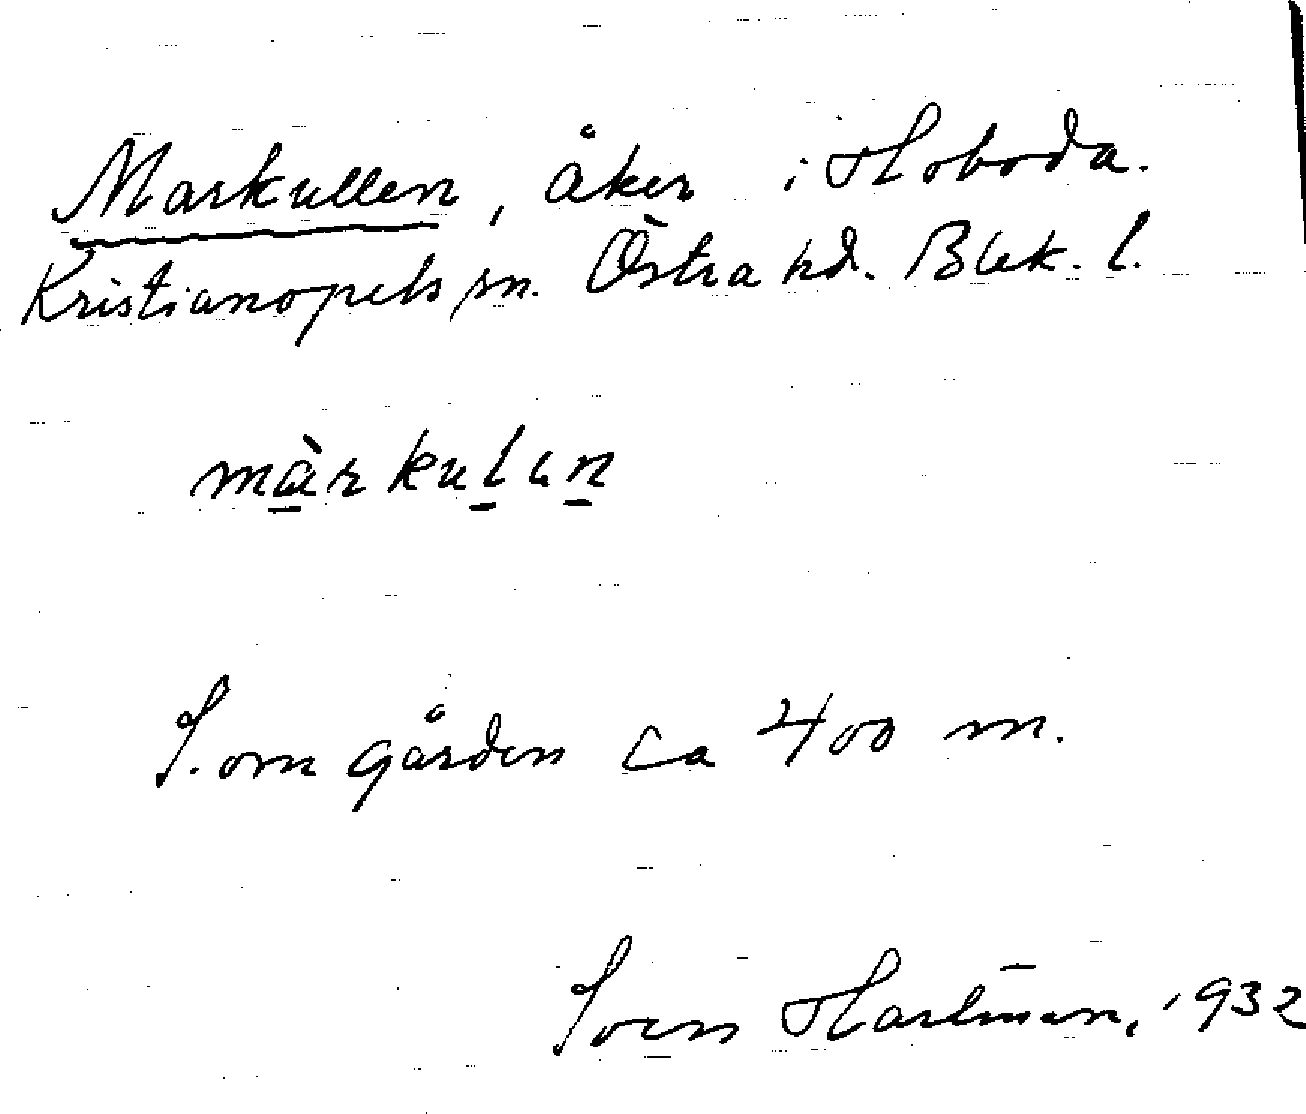 Markullen, åker i Hoboda.
Kristianopels sn. Östra hd. Blek. l.
màrkulen
S. om gården ca 400 m.
Sven Hartman, 1932